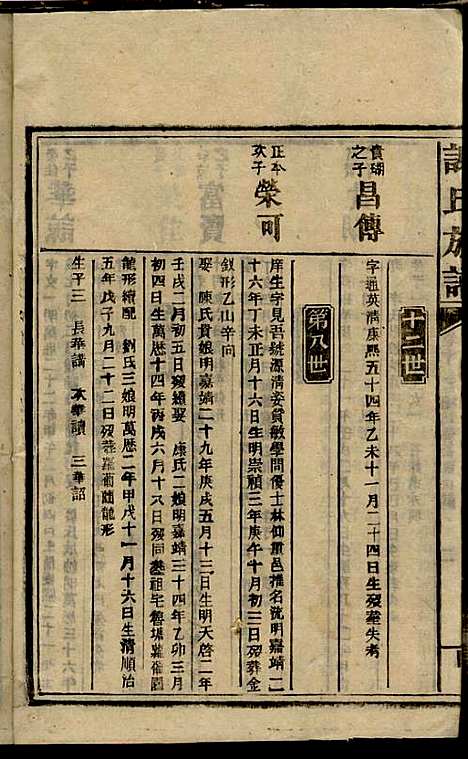 氏族譜
十二世
貴瑚之子 昌傳
字廸英清康熙五十四年乙未十一月二十四日生歿葬失考
第八世
正本次子 榮可
庠生字見吾號源清姿質敏學問優士林仰重邑推名流明嘉靖二
十六年丁未正月十六日生明崇禎三年庚午十月初二日歿葬金
釵形乙山辛向
娶 陳氏貴娘明嘉靖二十九年庚戌五月十三日生明天啓二年
壬戌二月初五日歿續娶 康氏二娘明嘉靖三十四年乙卯三月
初四日生萬歷十四年丙戌六月十八日歿同葬祖宅魯塘蘿蔔園
龍形續配 劉氏三娘明萬歷二年甲戌十一月十六日生清順治
五年戊子九月二十二日歿葬蘿蔔園龍形
生子三 長華講 次華讀 三華詔